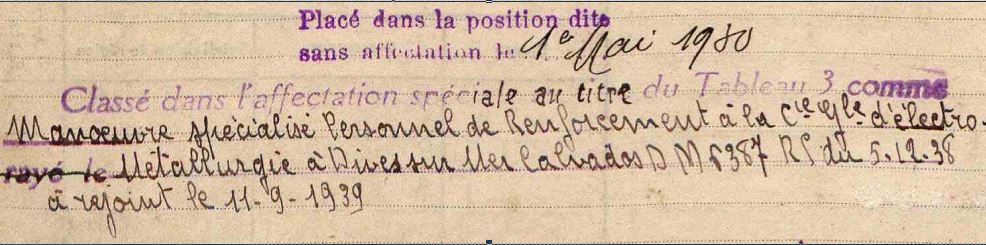 Placé dans la position dite
sans affectation le 1er Mai 1930
Classé dans l'affectation spéciale au titre du Tableau 3 comme
Manœuvre spécialisé Personnel de Renforcement à la Cie Gle d'électro-
rayé le Métallurgie à Dives sur Mer Calvados D M 6387 RP du 5.12.38
a rejoint le 11-9-1939